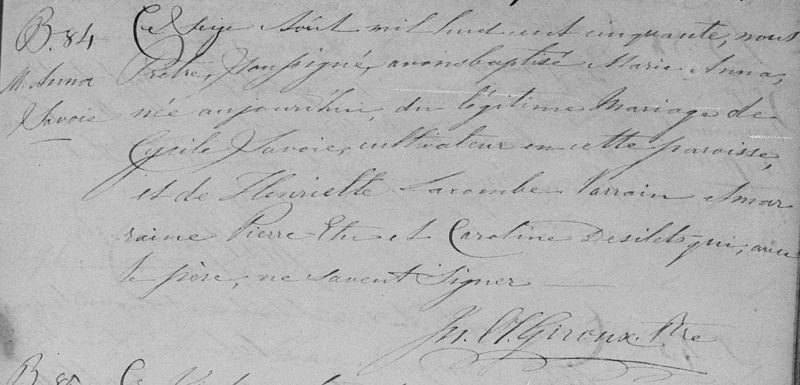 B. 84
M. Anna
Savoie
Ce seize Août mil huit cent cinquante, nous
Prêtre, Soussigné, avons baptisé Marie Anna,
née aujourd'hui, du légitime Mariage de
Cyrile Savoie, cultivateur en cette paroisse,
et de Henriette Lacombe Parrain et mar
raine Pierre et Caroline Desilets qui, avec
le père, ne savent signer
Giroux. Ptre
B. 85